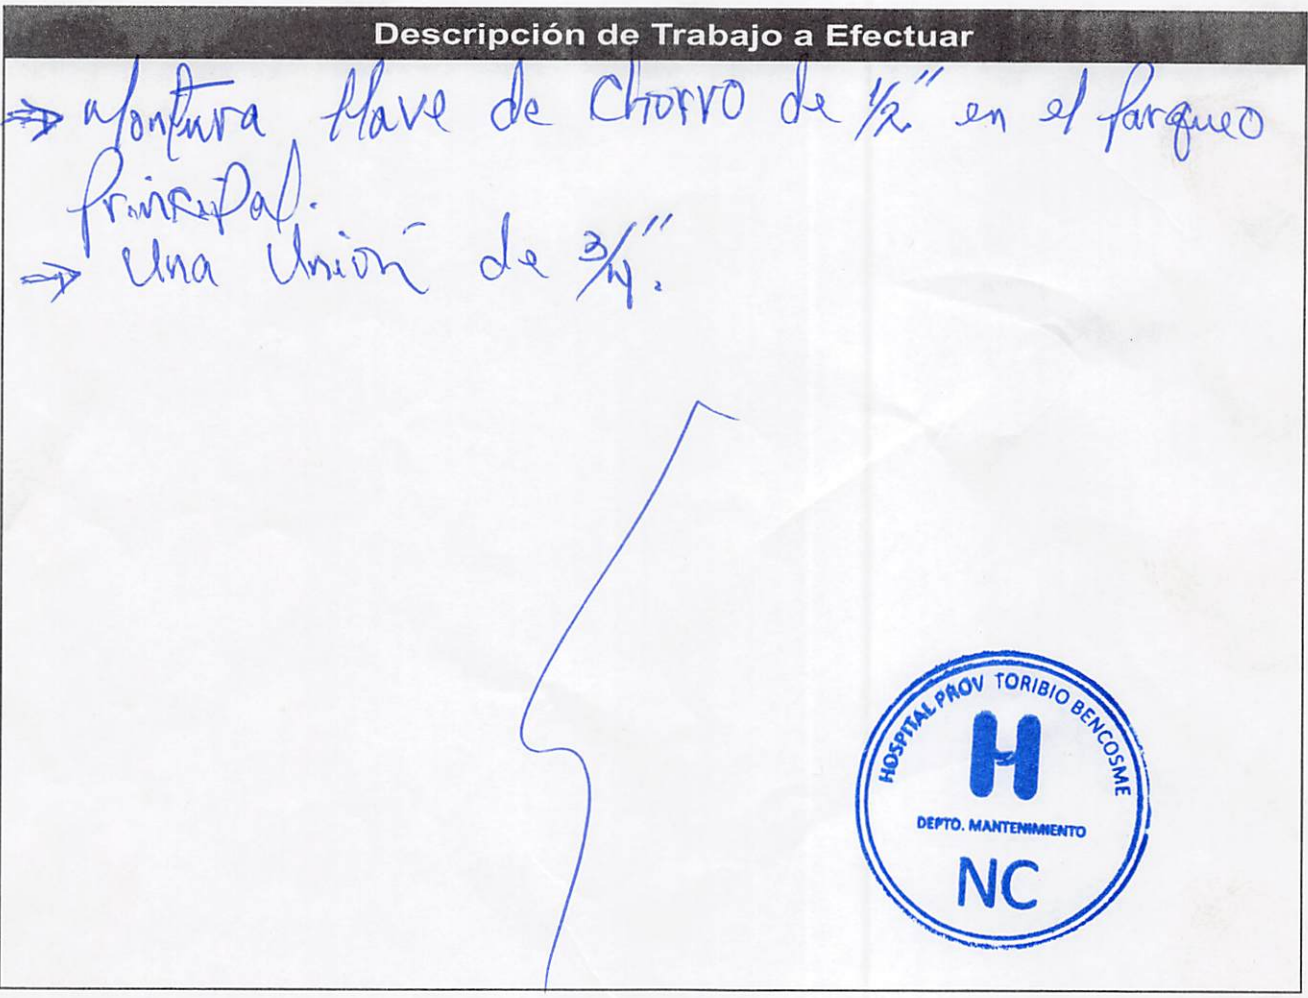 Descripción de Trabajo a Efectuar
⇒ Montura llave de Chorro de 1/2" en el Parqueo
Principal.
⇒ Una Unión de 3/4".
HOSPITAL PROV TORIBIO BENCOSME
H
DEPTO. MANTENIMIENTO
NC